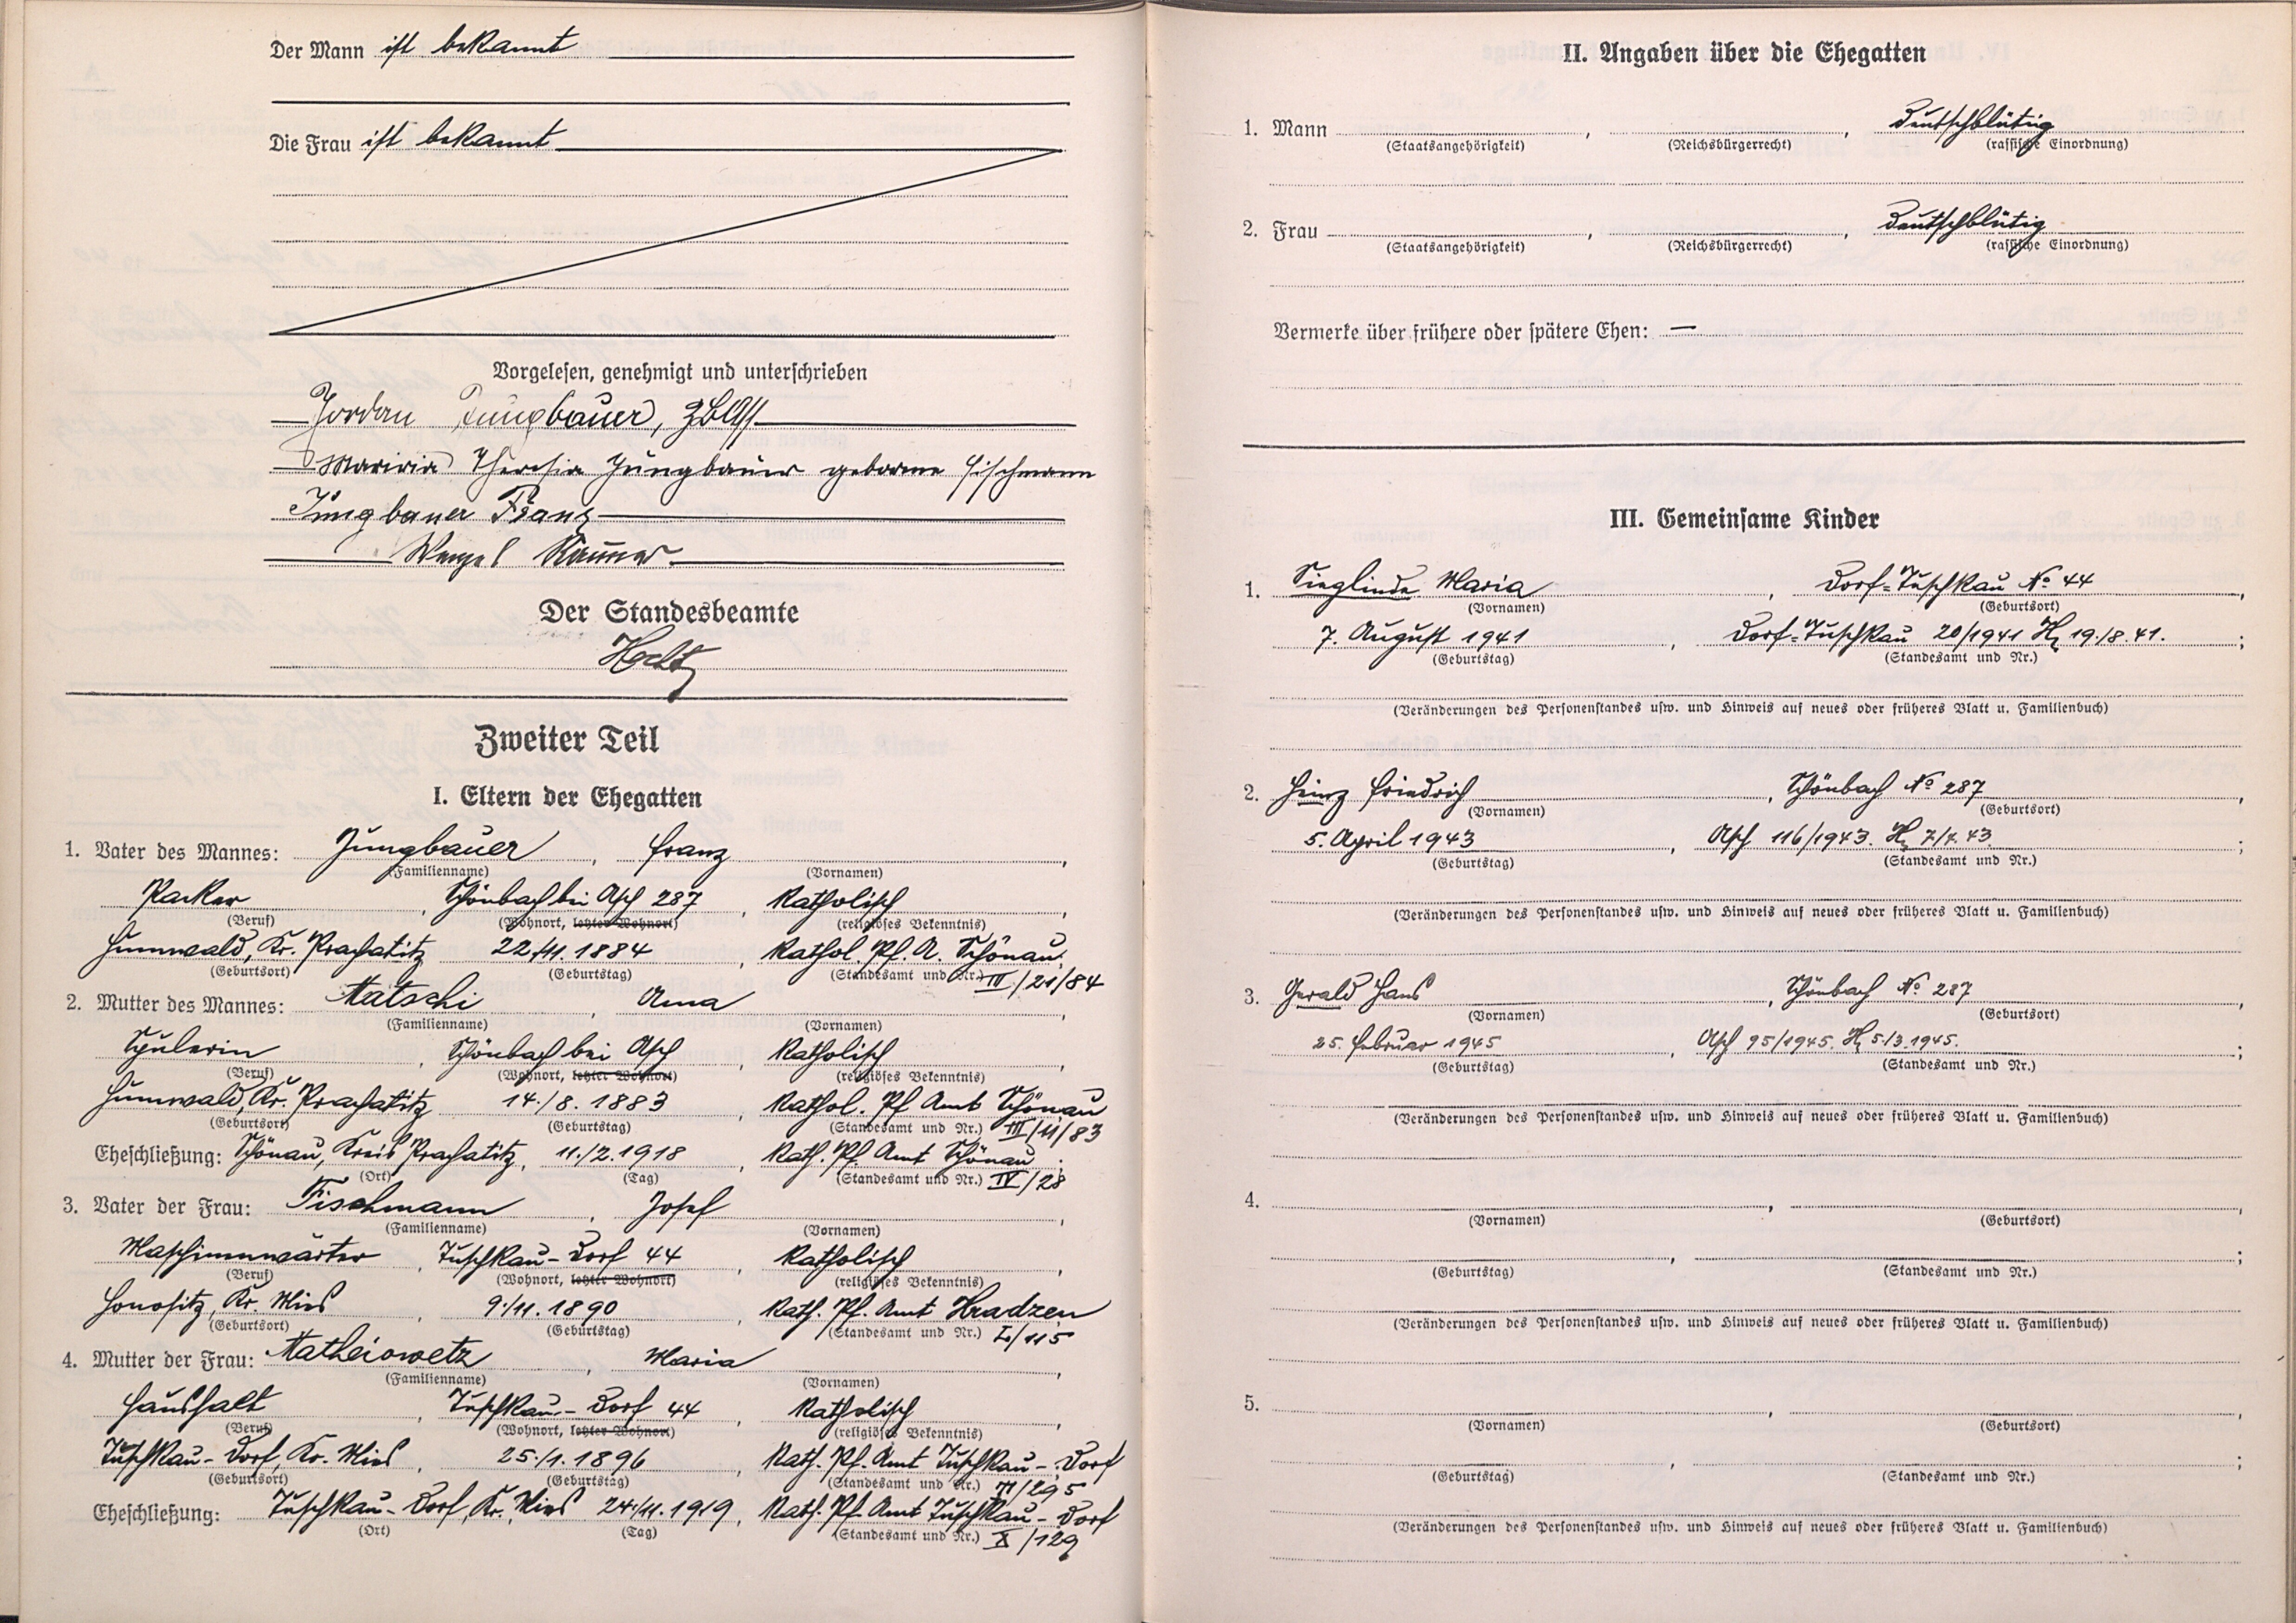 Der Mann ist bekannt
Die Frau ist bekannt
Vorgelesen, genehmigt und unterschrieben
Jordan Jungbauer,
Theresia Jungbauer geborene Fischmann
Jungbauer Franz
Wenzel
Der Standesbeamte
Zweiter Teil
I. Eltern der Ehegatten
1. Vater des Mannes: Jungbauer, Franz,
(Familienname) (Vornamen)
Packer, Schönbach bei Asch 287, Katholisch,
(Beruf) (Wohnort, letzter Wohnort) (religiöses Bekenntnis)
Humwald, Kr. Prachatitz 22./11. 1884, Kathol. Pf. A. Schönau
(Geburtsort) (Geburtstag) (Standesamt und Nr.) III/21/84
2. Mutter des Mannes: Matschi, Anna,
(Familienname) (Vornamen)
Spulerin, Schönbach bei Asch Katholisch
(Beruf) (Wohnort, letzter Wohnort) (religiöses Bekenntnis)
Humwald, Kr. Prachatitz 14./8. 1883, Kathol. Pf Amt Schönau
(Geburtsort) (Geburtstag) (Standesamt und Nr.) III/11/83
Eheschließung: Schönau, Kreis Prachatitz, 11./2. 1918, Kath. Pf. Amt Schönau;
(Ort) (Tag) (Standesamt und Nr.) IV/28
3. Vater der Frau: Fischmann, Josef,
(Familienname) (Vornamen)
Maschinenwärter, Tuschkau-Dorf 44 Katholisch,
(Beruf) (Wohnort, letzter Wohnort) (religiöses Bekenntnis)
Honositz, Kr. Mies, 9./11. 1890, Kath. Pf. Amt Hradzen
(Geburtsort) (Geburtstag) (Standesamt und Nr.) /115
4. Mutter der Frau: Matheiowetz, Maria,
(Familienname) (Vornamen)
Haushalt, Tuschkau-Dorf 44, Katholisch,
(Beruf) (Wohnort, letzter Wohnort) (religiöses Bekenntnis)
Tuschkau-Dorf, Kr. Mies, 25./1. 1896, Kath. Pf. Amt Tuschkau-Dorf
(Geburtsort) (Geburtstag) (Standesamt und Nr.) /295
Eheschließung: Tuschkau-Dorf, Kr. Mies 24./11. 1919, Kath. Pf. Amt Tuschkau-Dorf
(Ort) (Tag) (Standesamt und Nr.) X/129
II. Angaben über die Ehegatten
1. Mann, , Deutschblütig
(Staatsangehörigkeit) (Reichsbürgerrecht) (rassische Einordnung)
2. Frau, , Deutschblütig
(Staatsangehörigkeit) (Reichsbürgerrecht) (rassische Einordnung)
Vermerke über frühere oder spätere Ehen: —
III. Gemeinsame Kinder
1. Sieglinde Maria, Dorf=Tuschkau No 44,
(Vornamen) (Geburtsort)
7. August 1941, Dorf=Tuschkau 20/1941 19./8. 41.;
(Geburtstag) (Standesamt und Nr.)
(Veränderungen des Personenstandes usw. und Hinweis auf neues oder früheres Blatt u. Familienbuch)
2. Heinz Friedrich, Schönbach No 287,
(Vornamen) (Geburtsort)
5. April 1943, Asch 116/1943. 7/4. 43.;
(Geburtstag) (Standesamt und Nr.)
(Veränderungen des Personenstandes usw. und Hinweis auf neues oder früheres Blatt u. Familienbuch)
3. Gerald Hans, Schönbach No 287,
(Vornamen) (Geburtsort)
25. Februar 1945, Asch 95/1945. 5./3. 1945.;
(Geburtstag) (Standesamt und Nr.)
(Veränderungen des Personenstandes usw. und Hinweis auf neues oder früheres Blatt u. Familienbuch)
4. , ,
(Vornamen) (Geburtsort)
, ;
(Geburtstag) (Standesamt und Nr.)
(Veränderungen des Personenstandes usw. und Hinweis auf neues oder früheres Blatt u. Familienbuch)
5. , ,
(Vornamen) (Geburtsort)
, ;
(Geburtstag) (Standesamt und Nr.)
(Veränderungen des Personenstandes usw. und Hinweis auf neues oder früheres Blatt u. Familienbuch)